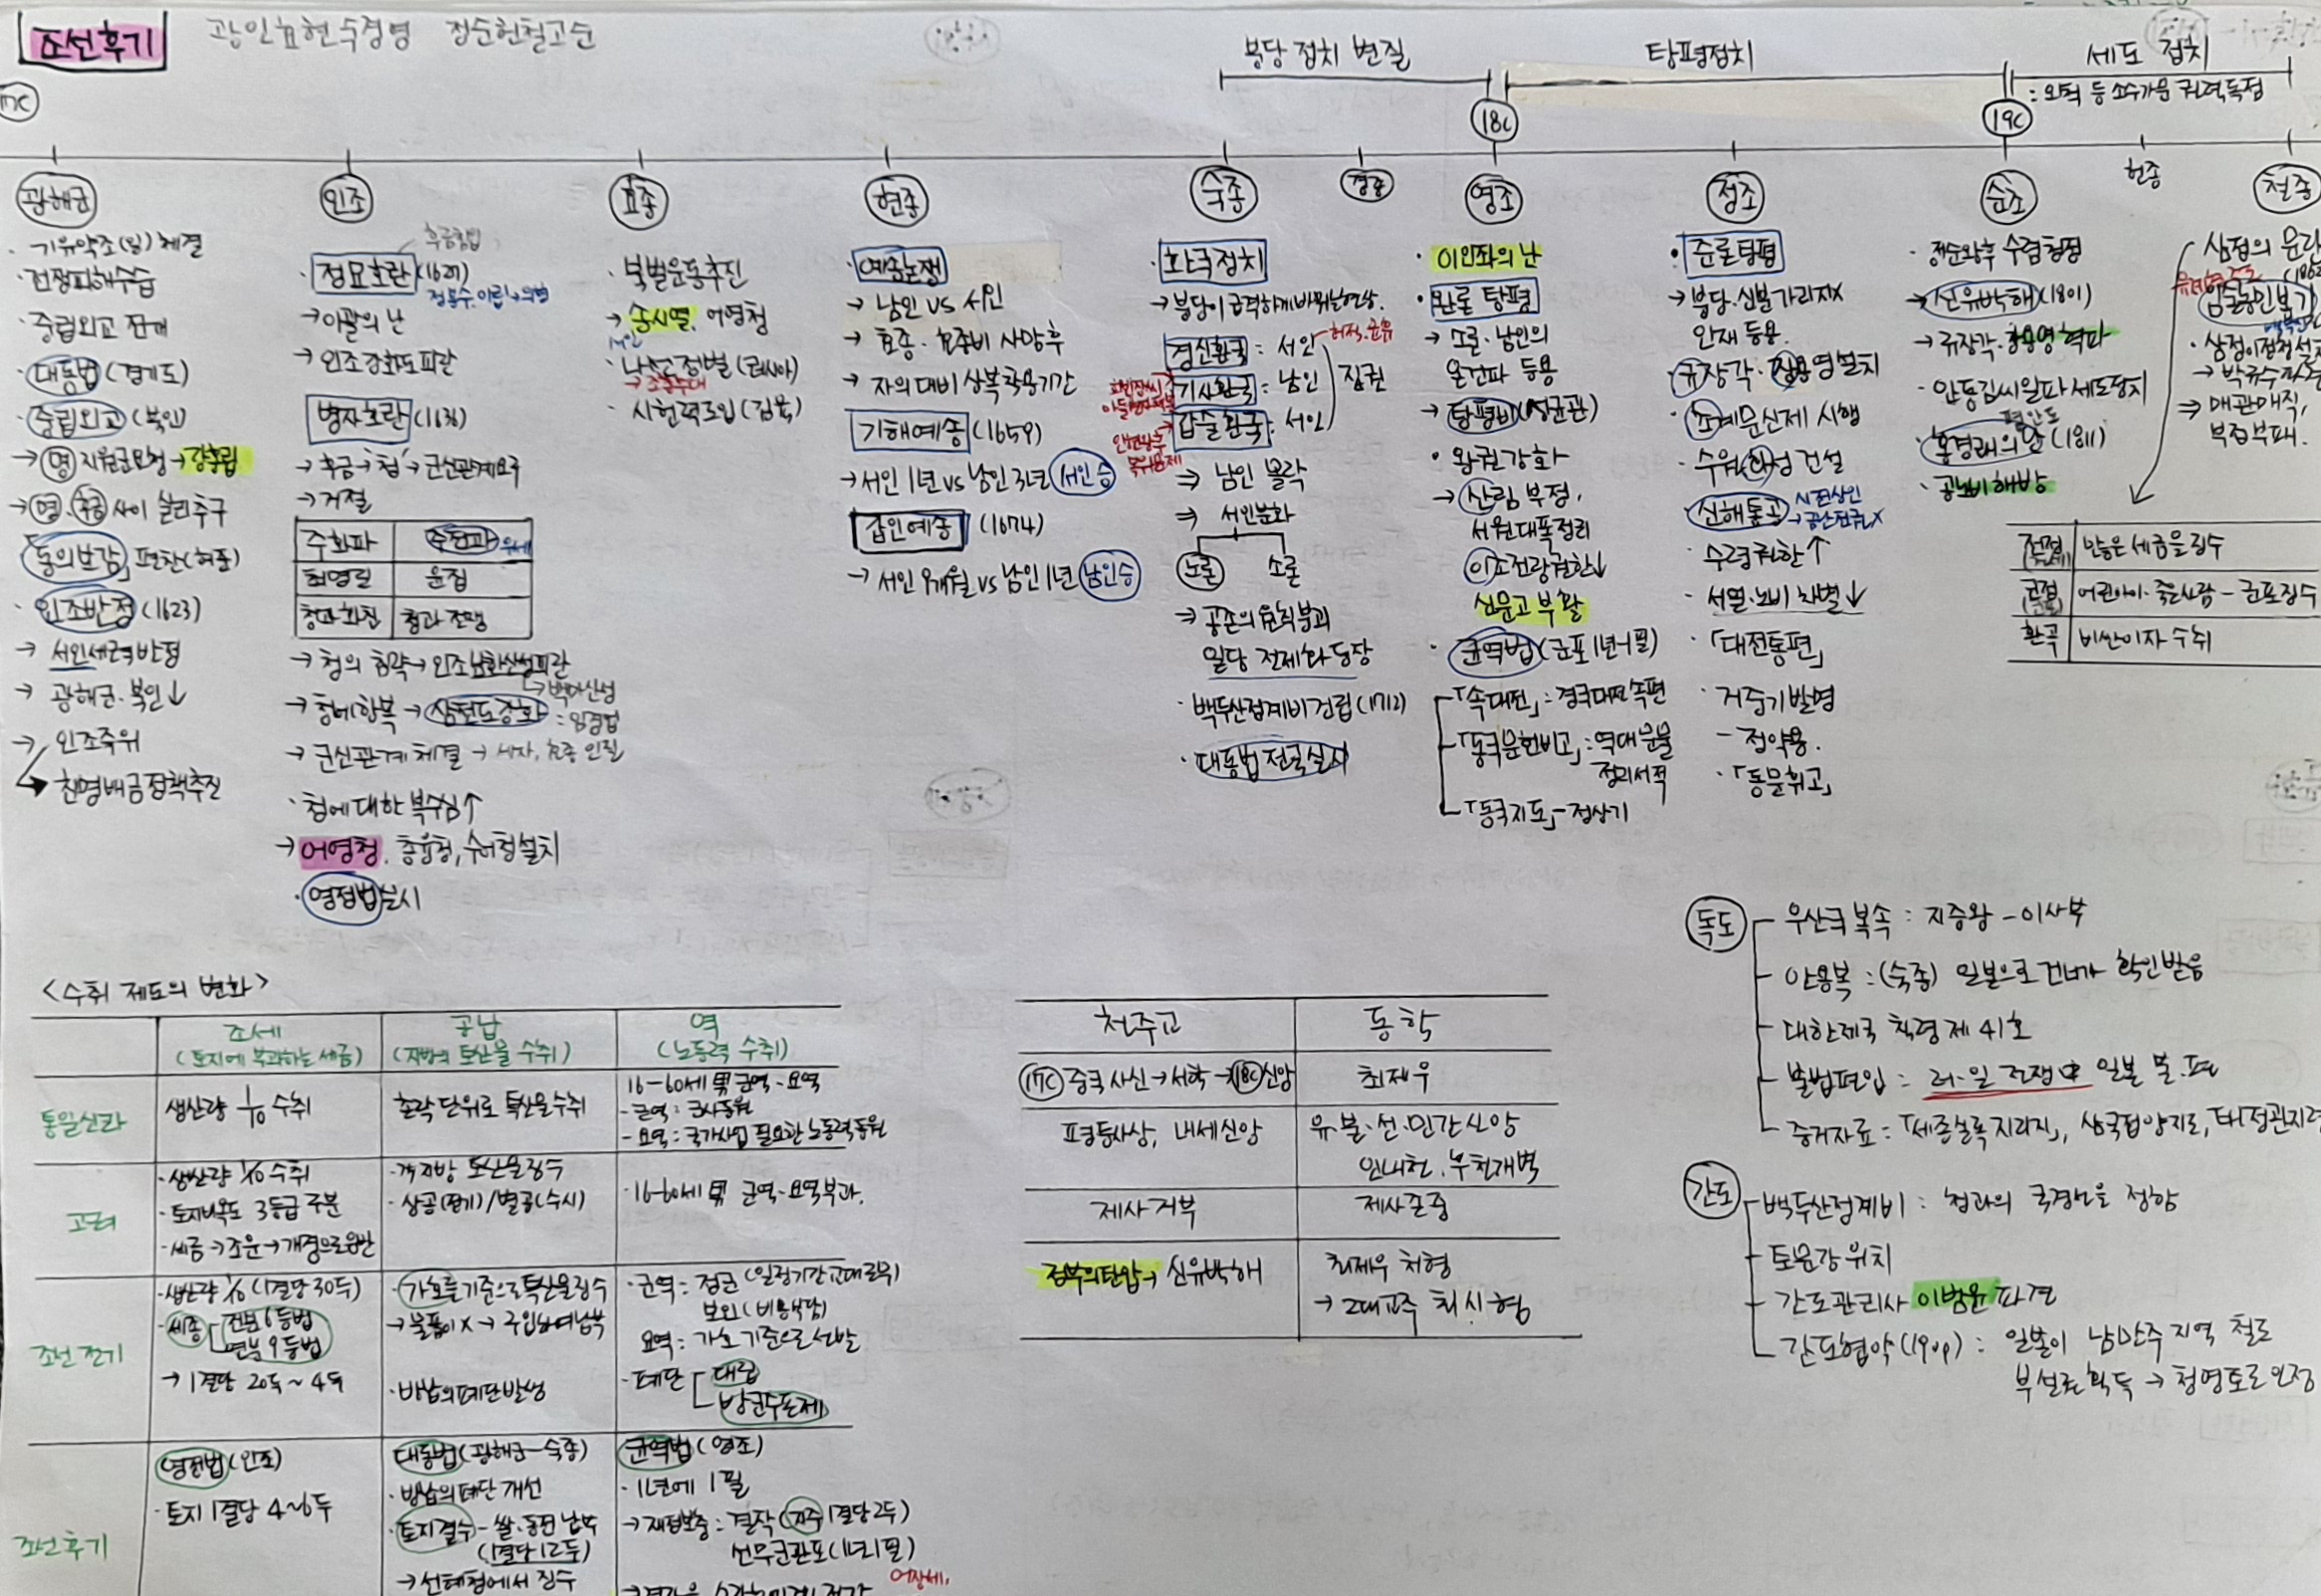 조선후기
광인효현숙경영 정순헌철고순
붕당 정치 변질
탕평정치
세도 정치
: 외척 등 소수가문 권력독점
17C
18C
19C
광해군
· 기유약조(일) 체결
· 전쟁피해수습
· 중립외교 전개
· 대동법 (경기도)
· 중립외교 (북인)
→ 명 지원군요청 → 강홍립
→ 명·후금 사이 실리추구
· 「동의보감」 편찬(허준)
· 인조반정 (1623)
→ 서인세력 반정
→ 광해군·북인↓
→ 인조즉위
→ 친명배금정책추진
인조
후금침입
· 정묘호란 (1627)
정봉수·이립→의병
→ 이괄의 난
→ 인조 강화도 피란
· 병자호란 (1636)
→ 후금→청→군신관계요구
→ 거절
주화파 주전파 우세
최명길 윤집
청과 화친 청과 전쟁
→ 청의 침략 → 인조 남한산성피란
→ 백마산성
: 임경업
→ 청에 항복 → 삼전도강화
→ 군신관계 체결 → 세자, 효종 인질
· 청에 대한 복수심↑
→ 어영청, 총융청, 수어청 설치
· 영정법 실시
효종
· 북벌운동추진
→ 송시열, 어영청
서인
· 나선정벌 (러시아)
→ 조총부대
· 시헌력도입 (김육)
현종
· 예송논쟁
→ 남인 vs 서인
→ 효종·효종비 사망후
→ 자의대비 상복착용기간
기해예송 (1659)
→ 서인 1년 vs 남인 3년 서인승
갑인예송 (1674)
→ 서인 9개월 vs 남인 1년 남인승
숙종
· 환국정치
→ 붕당이 급격하게 바뀌는현상.
경신환국 : 서인
허적·윤휴
기사환국 : 남인
갑술환국 : 서인
집권
희빈장씨
인현왕후
복위문제
⇒ 남인 몰락
⇒ 서인분화
노론 소론
→ 공존의 원칙붕괴
일당 전제화 등장
· 백두산정계비 건립 (1712)
· 대동법 전국실시
경종
영조
· 이인좌의 난
· 완론 탕평
→ 소론·남인의
온건파 등용
→ 탕평비 (성균관)
· 왕권강화
→ 산림 부정,
서원대폭정리
이조전랑권한↓
신문고 부활
· 균역법 (군포 1년 1필)
「속대전」 : 경국대전 속편
「동국문헌비고」 : 역대문물
정리서적
「동국지도」 - 정상기
정조
· 준론탕평
→ 붕당·신분 가리지X
인재 등용.
· 규장각·장용영설치
· 초계문신제 시행
· 수원 화성 건설
· 신해통공
시전상인
→ 금난전권X
· 수령권한↑
· 서얼·노비 차별↓
· 「대전통편」
· 거중기 발명
- 정약용.
· 「동문휘고」
순조
· 정순왕후 수렴청정
→ 신유박해 (1801)
→ 규장각·장용영 혁파
· 안동김씨일파 세도정치
평안도
· 홍경래의 난 (1811)
· 공노비 해방
헌종
철종
삼정의 문란
임술농민봉기
· 삼정이정청
→ 박규수
⇒ 매관매직,
부정부패.
전정 많은 세금을 징수
군정 어린아이·죽은사람 - 군포징수
환곡 비싼이자 수취
<수취 제도의 변화>
조세
(토지에 부과하는 세금)
공납
(지방의 토산물 수취)
역
(노동력 수취)
통일신라
생산량 1/10 수취
촌락 단위로 특산물 수취
16-60세 男 군역·요역
- 군역 : 군사동원
- 요역 : 국가사업 필요한 노동력동원
고려
· 생산량 1/10 수취
· 토지비옥도 3등급 구분
· 세금→조운→개경으로운반
· 각 지방 토산물 징수
· 상공(정기)/별공(수시)
· 16-60세 男 군역·요역부과.
조선 전기
· 생산량 1/10 (1결당 30두)
· 세종 전분 6등법
연분 9등법
→ 1결당 20두~4두
· 가호를 기준으로 특산물 징수
→ 물품이 X → 구입하여납부
· 방납의 폐단 발생
· 군역 : 정군 (일정기간 교대로복무)
보인 (비용부담)
요역 : 가호 기준으로 선발
· 폐단 대립
방군수포제
조선후기
영정법 (인조)
· 토지 1결당 4~6두
대동법 (광해군-숙종)
· 방납의 폐단 개선
· 토지결수 - 쌀·동전 납부
(1결당 12두)
→ 선혜청에서 징수
균역법 (영조)
· 1년에 1필
→ 재정보충 : 결작 (지주 1결당 2두)
선무군관포 (1년1필)
어장세,
천주교 동학
17C 중국 사신→서학→18C신앙
최제우
평등사상, 내세신앙
유·불·선·민간신앙
인내천, 후천개벽
제사거부
제사존중
정부의탄압 → 신유박해
최제우 처형
→ 2대교주 최시형
독도
우산국 복속 : 지증왕 - 이사부
안용복 : (숙종) 일본으로 건너가 확인받음
대한제국 칙령 제 41호
불법편입 : 러·일 전쟁 中 일본 불·편
증거자료 : 「세종실록지리지」, 삼국접양지도, 태정관지령
간도
백두산정계비 : 청과의 국경선을 정함
토문강 위치
간도관리사 이범윤 파견
간도협약(1909) : 일본이 남만주 지역 철도
부설권 획득 → 청영토로 인정